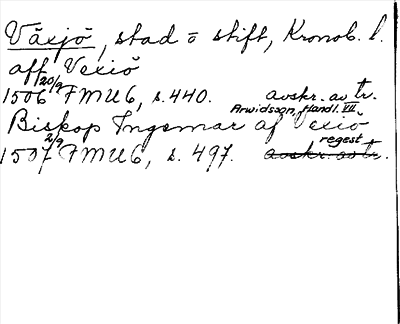 Växjö, stad o stift, Kronob. l.
aff Vexiö
1506 20/9 FMU6, s. 440. avskr. av tr.
Arwidsson, Handl. VII.
Biskop Ingemar af Vexiö
1507 2/9 FMU6, s. 497. regest avskr. av tr.